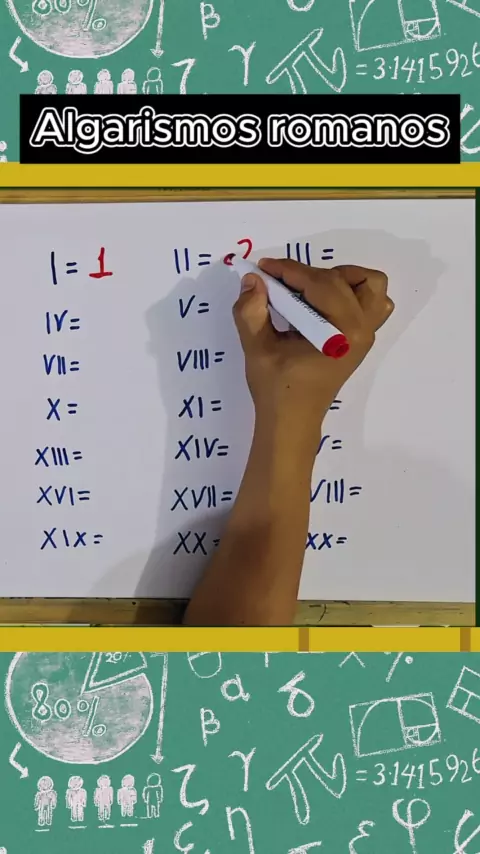 80%
β
γ
ζ
π
=3.141592
Algarismos romanos
I = 1 II = 2 III =
IV = V =
VII = VIII =
X = XI = =
XIII = XIV = =
XVI = XVII = VIII =
XIX = XX = XX =
20%
80%
α
δ
%
β
γ
π
=3.141592
ζ
η
φ
ε